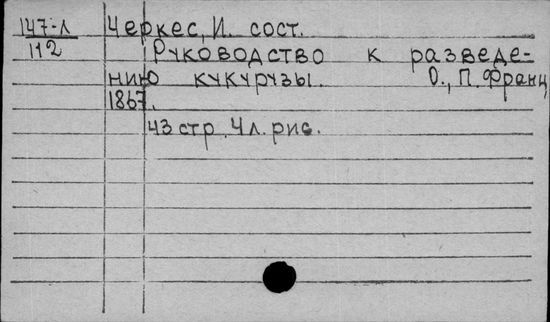 147-л Черкес, И. сост.
112 Руководство к разведе-
нию кукурузы. О., П. Франц
1867.
43 стр. 4 л. рис.